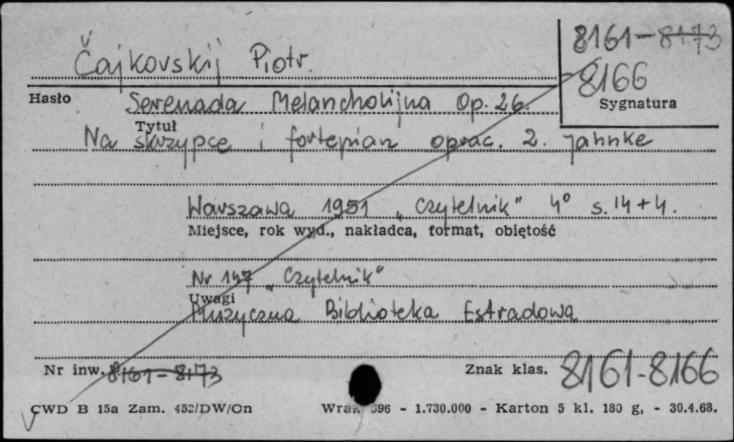 8161-8173
Čajkovskij Piotr.
8166
Hasło Serenada Melancholijna Op. 26.
Sygnatura
Tytuł
Na skrzypce i fortepian oprac. Z. Jahnke
Warszawa 1951 „Czytelnik" 4° s. 14 + 4.
Miejsce, rok wyd., nakładca, format, objętość
Nr 147 „Czytelnik"
Uwagi
Muzyczna Biblioteka Estradowa
Nr inw. 8161-8173 Znak klas. 8161-8166
CWD B 15a Zam. 452/DW/On 396 - 1.730.000 - Karton 5 kl. 180 g, - 30.4.68.